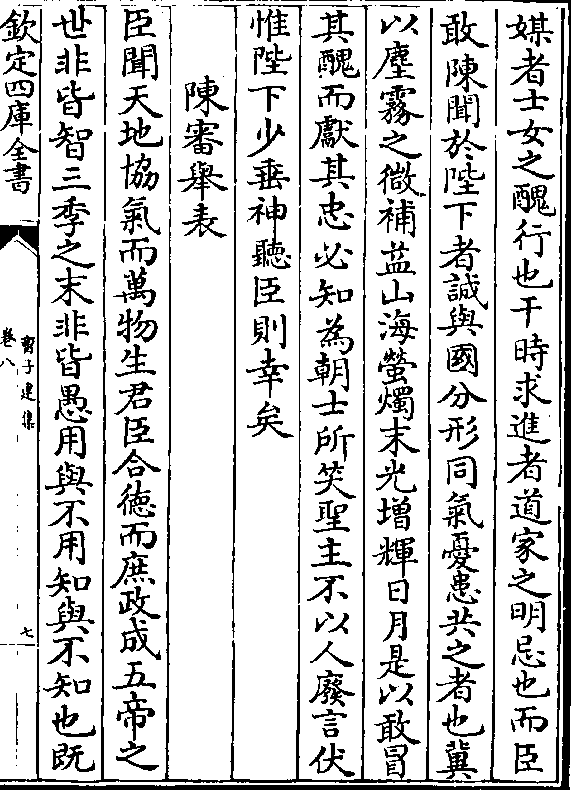 媒者士女之醜行也干時求進者道家之明忌也而臣
敢陳聞於陛下者誠與國分形同氣憂患共之者也冀
以塵霧之微補益山海螢燭末光增輝日月是以敢冒
其醜而獻其忠必知為朝士所笑聖主不以人廢言伏
惟陛下少垂神聽臣則幸矣
陳審舉表
臣聞天地協氣而萬物生君臣合徳而庶政成五帝之
世非皆智三季之末非皆愚用與不用知與不知也既
欽定四庫全書
曹子建集
卷八
七